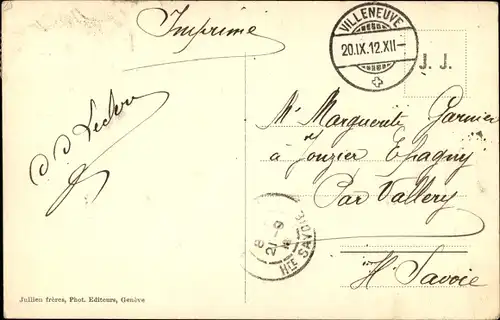 Imprimé
VILLENEUVE
20.IX.12.XII-
J. J.
Mlle Marguerite Garnier
à Jonzier Epagny
Par Vallery
Hte Savoie
8
21-9
HTE SAVOIE
Jullien frères, Phot. Editeurs, Genève